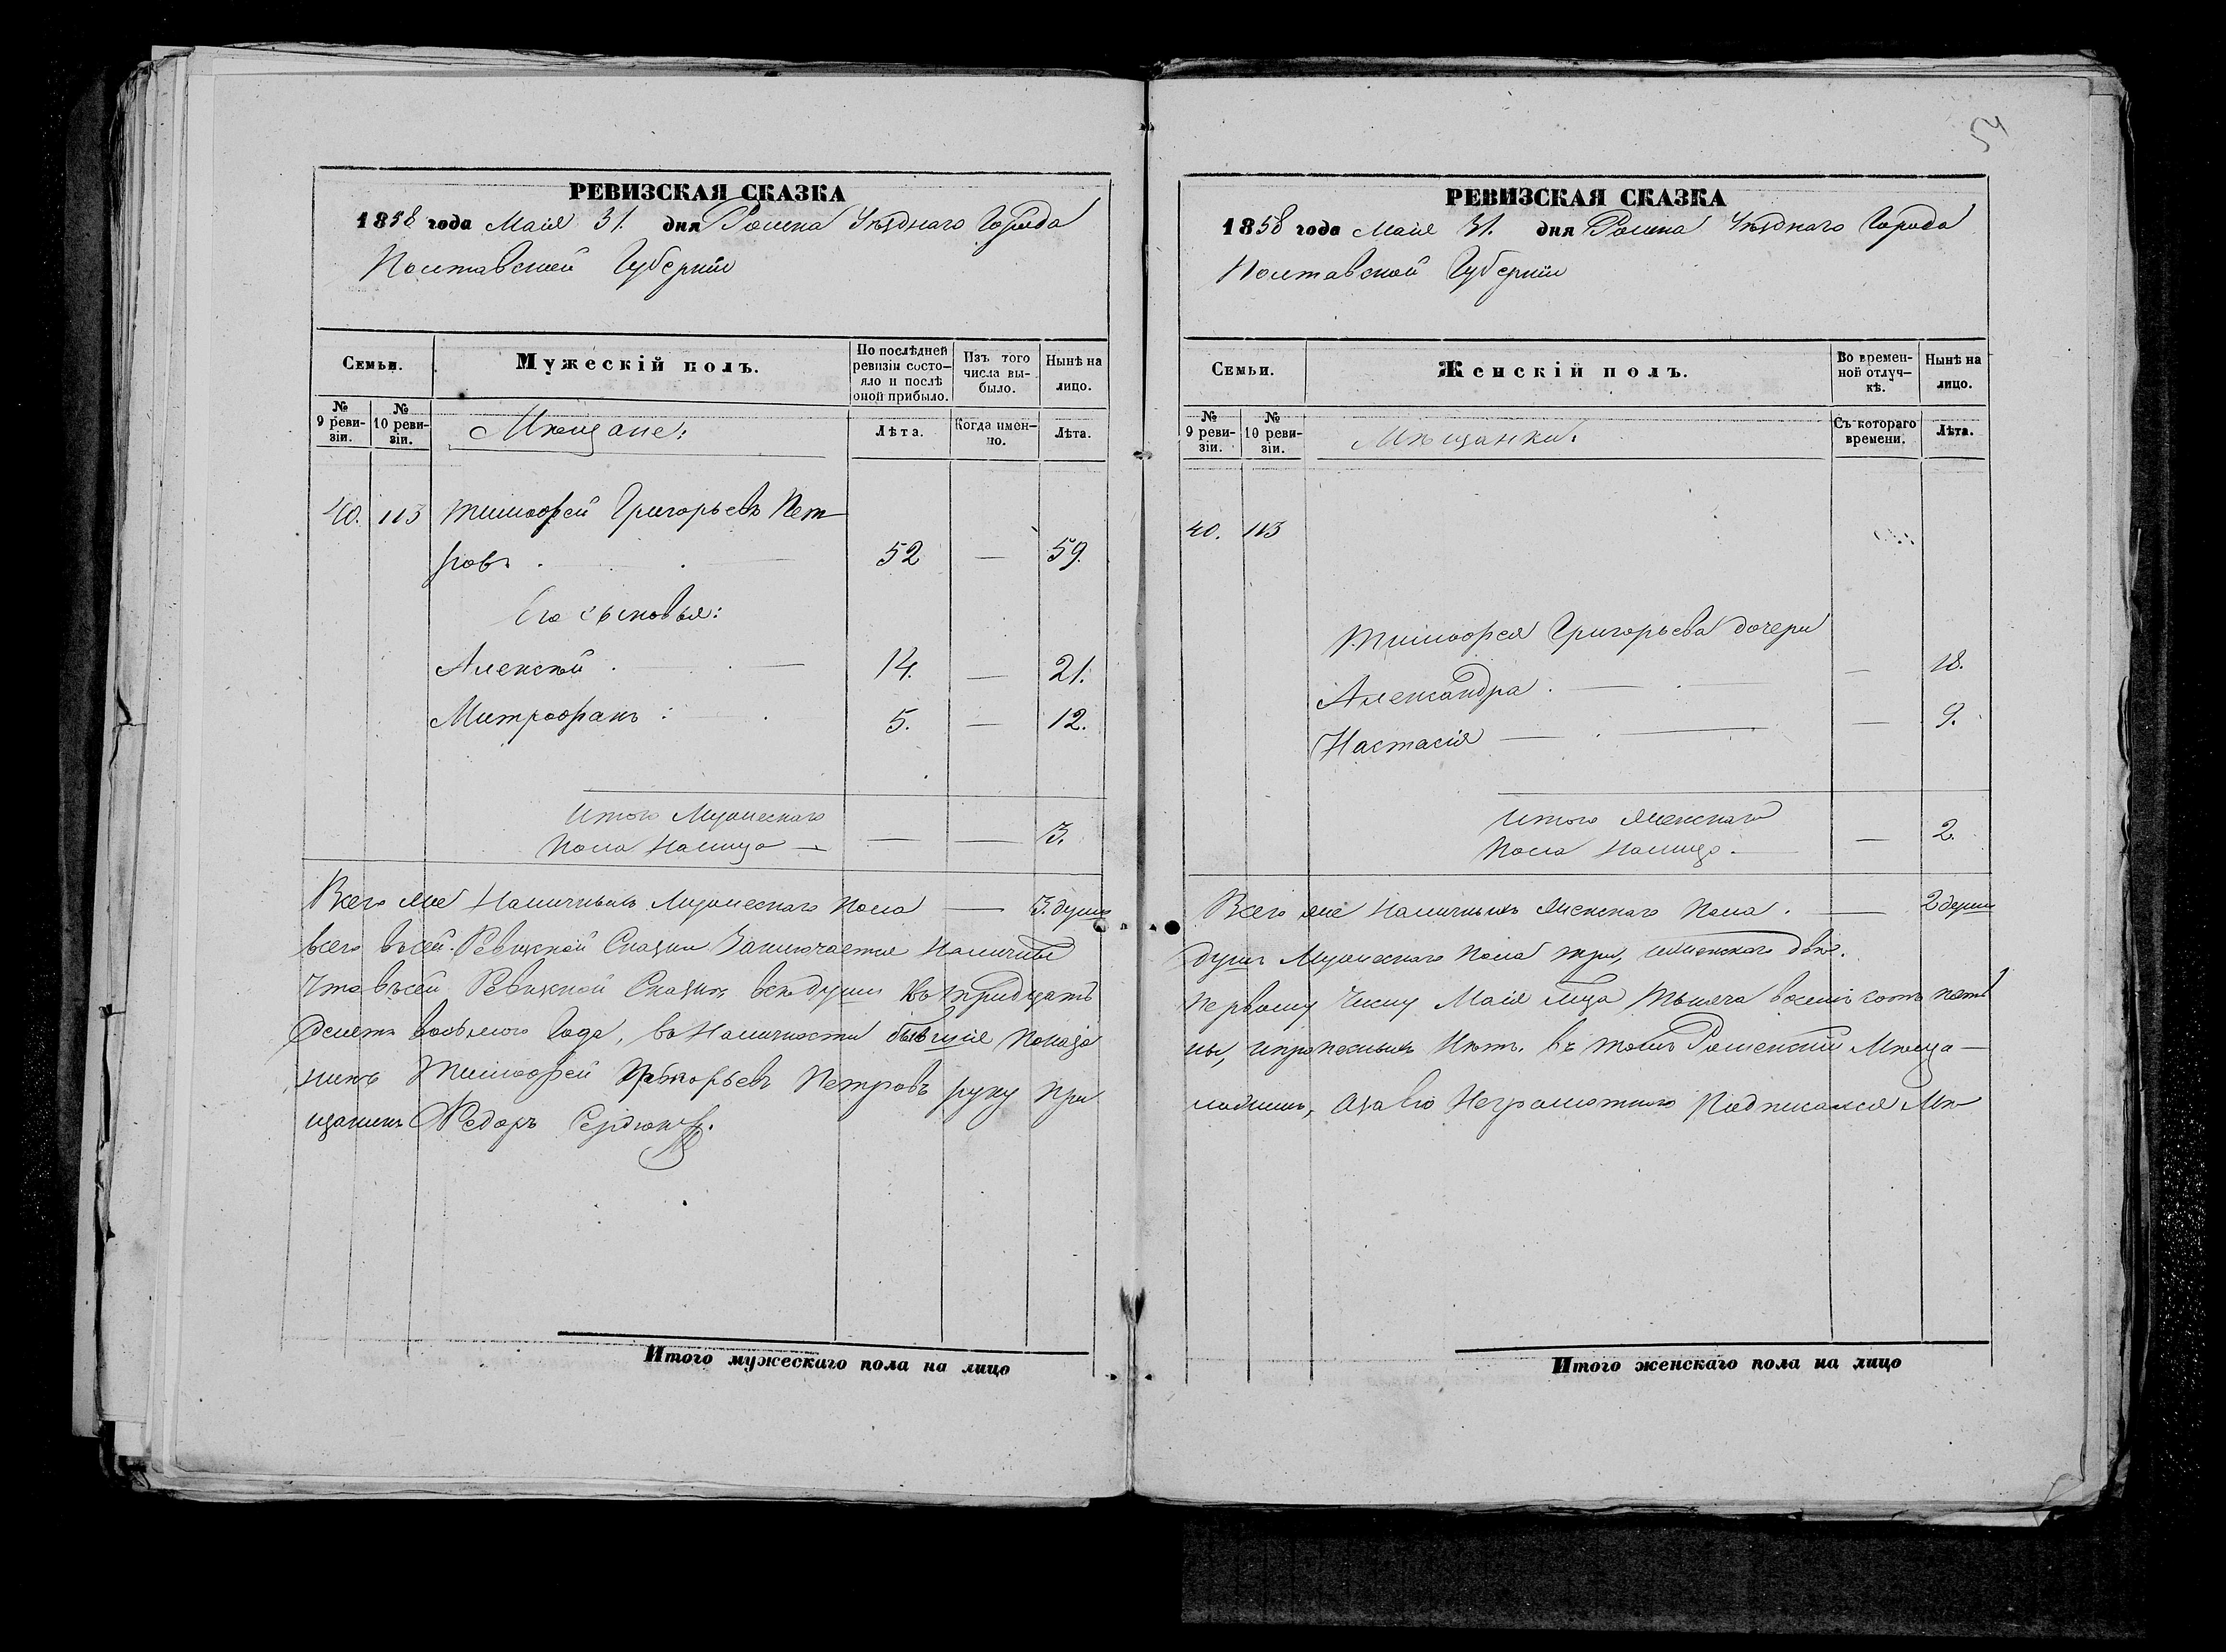 РЕВИЗСКАЯ СКАЗКА
1858 года Маія 31. дня Ромна Уѣзднаго Города
Полтавской Губерніи
Семьи.
Мужескій полъ.
По послѣдней ревизіи состо-
яло и послѣ оной прибыло.
Изъ того числа вы-
было.
Нынѣ на лицо.
№ 9 реви-
зіи.
№ 10 реви-
зіи.
Мѣщане:
Лѣта.
Когда имен-
но.
Лѣта.
40. 113 Тимофей Григорьевъ Пет-
ровъ 52 — 59.
Его сыновья:
Алексѣй 14. — 21.
Митрофанъ 5. — 12.
Итого Мужескаго
Пола Налицо — — — 3.
Всего же Наличныхъ Мужескаго Пола — 3. душъ
всего въсей Ревизской Сказки Заключается Наличные
Что въсей Ревизской Сказки всѣ души
десятъ восьмого Года, въ Наличности бывшіе Показа
нинъ Тимофей Григорьевъ Петровъ руку при
щанинъ Федоръ Сердюкъ.
Итого мужескаго пола на лицо
54
РЕВИЗСКАЯ СКАЗКА
1858 года Маія 31. дня Ромна Уѣзднаго Города
Полтавской Губерніи
Семьи.
Женскій полъ.
Во времен-
ной отлуч-
кѣ.
Нынѣ на лицо.
№ 9 реви-
зіи.
№ 10 реви-
зіи.
Мѣщанки:
Съ котораго времени.
Лѣта.
40. 113
Тимофея Григорьева дочери
Александра — 18.
Настасія — 9.
Итого Женскаго
Пола Налицо — — 2.
Всего же Наличныхъ Женскаго Пола. — 2 души
душъ Мужескаго Пола три, иженскаго двѣ.
Первому Числу Маія Тысяча восемь сотъ пять
ны, ипропесныхъ Нѣтъ. Въ томъ Роменскій Мѣща-
ложилъ, азаего Неграмотного Подписался Мѣ
Итого женскаго пола на лицо